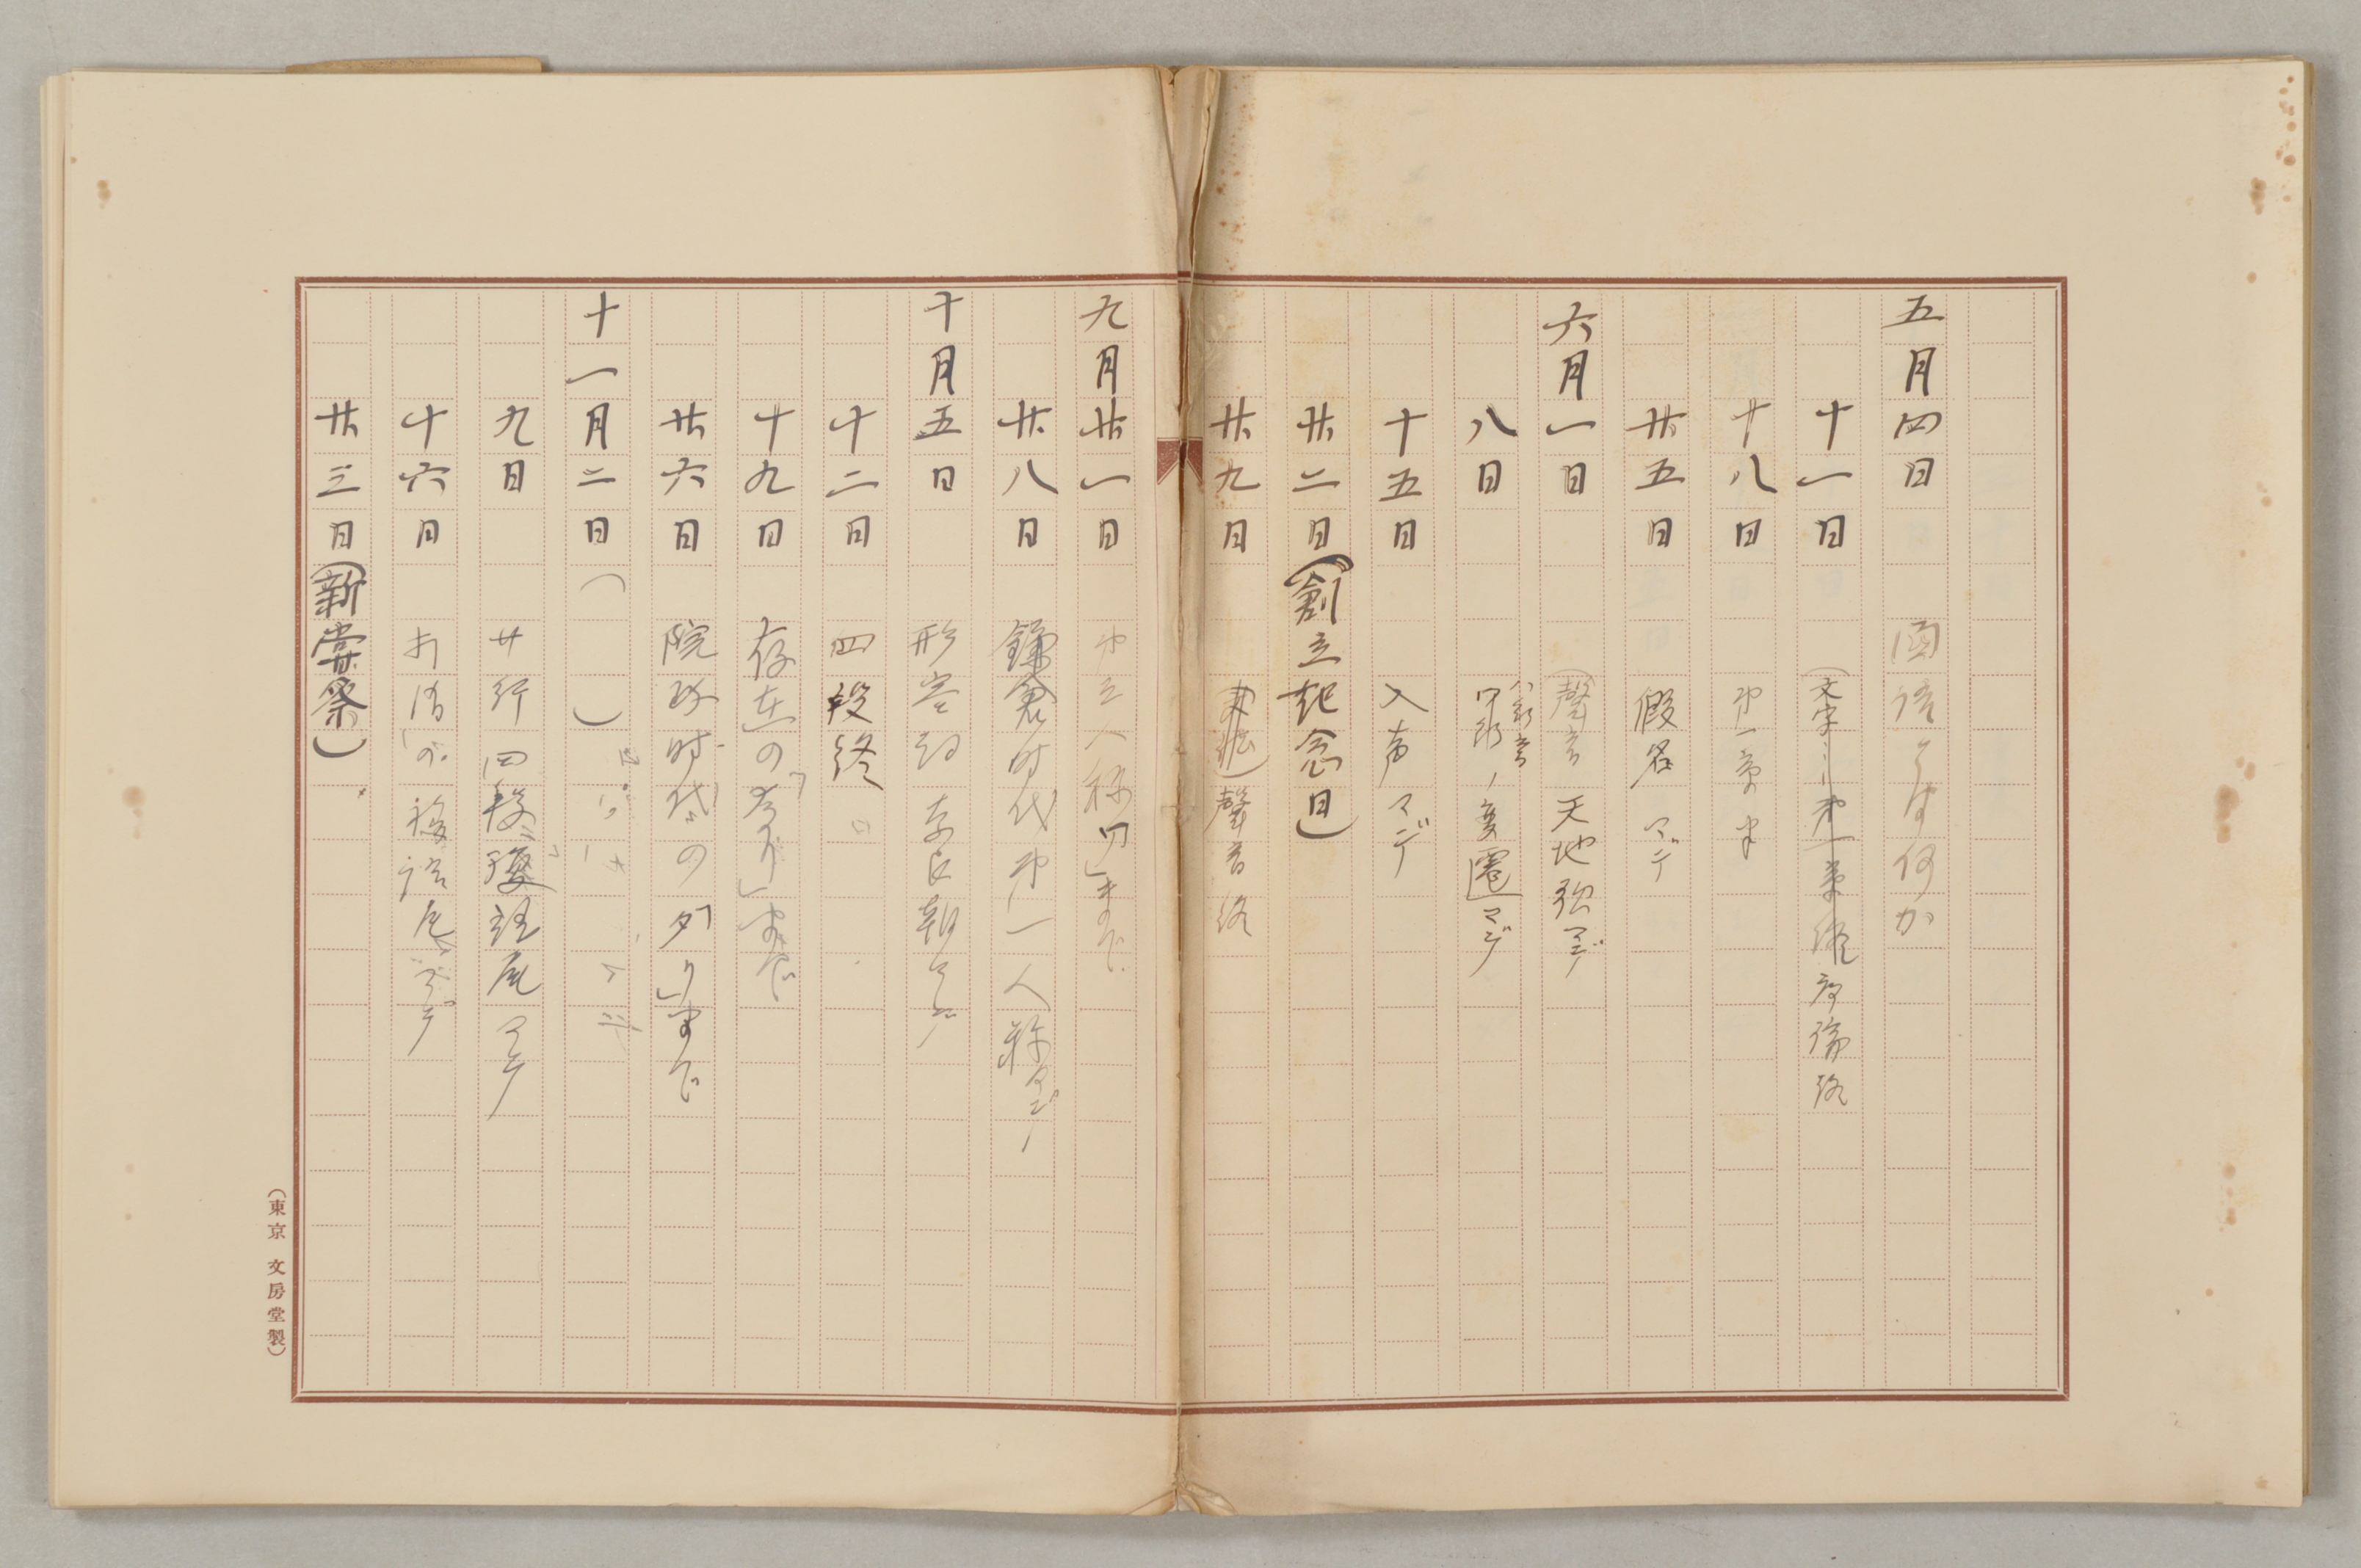 五月四日 国語とは何か
十一日 (文字ニ 第一章終 序論終
十八日 第一章半
廿五日 假名マデ
六月一日 (聲音 天地歌マデ
八日 ハ行音 ワ行ノ変遷マデ
十五日 入声マデ
廿二日(創立記念日)
廿九日 聲音終
九月廿一日 第三人称 まで
廿八日 鎌倉時代第一人称マデ
十月五日 形容詞 奈良朝マデ
十二日 四段終
十九日 存在の「あり」まで
廿六日 院政時代の まで
十一月二日( )
九日 サ行四段 語尾マデ
十六日 語尾マデ
廿三日(新嘗祭)
(東京 文房堂製)